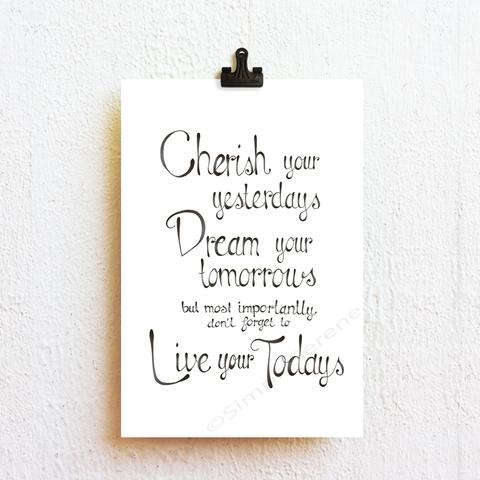 Cherish your
yesterdays
Dream your
tomorrows
but most importantly,
don't forget to
Live your Todays